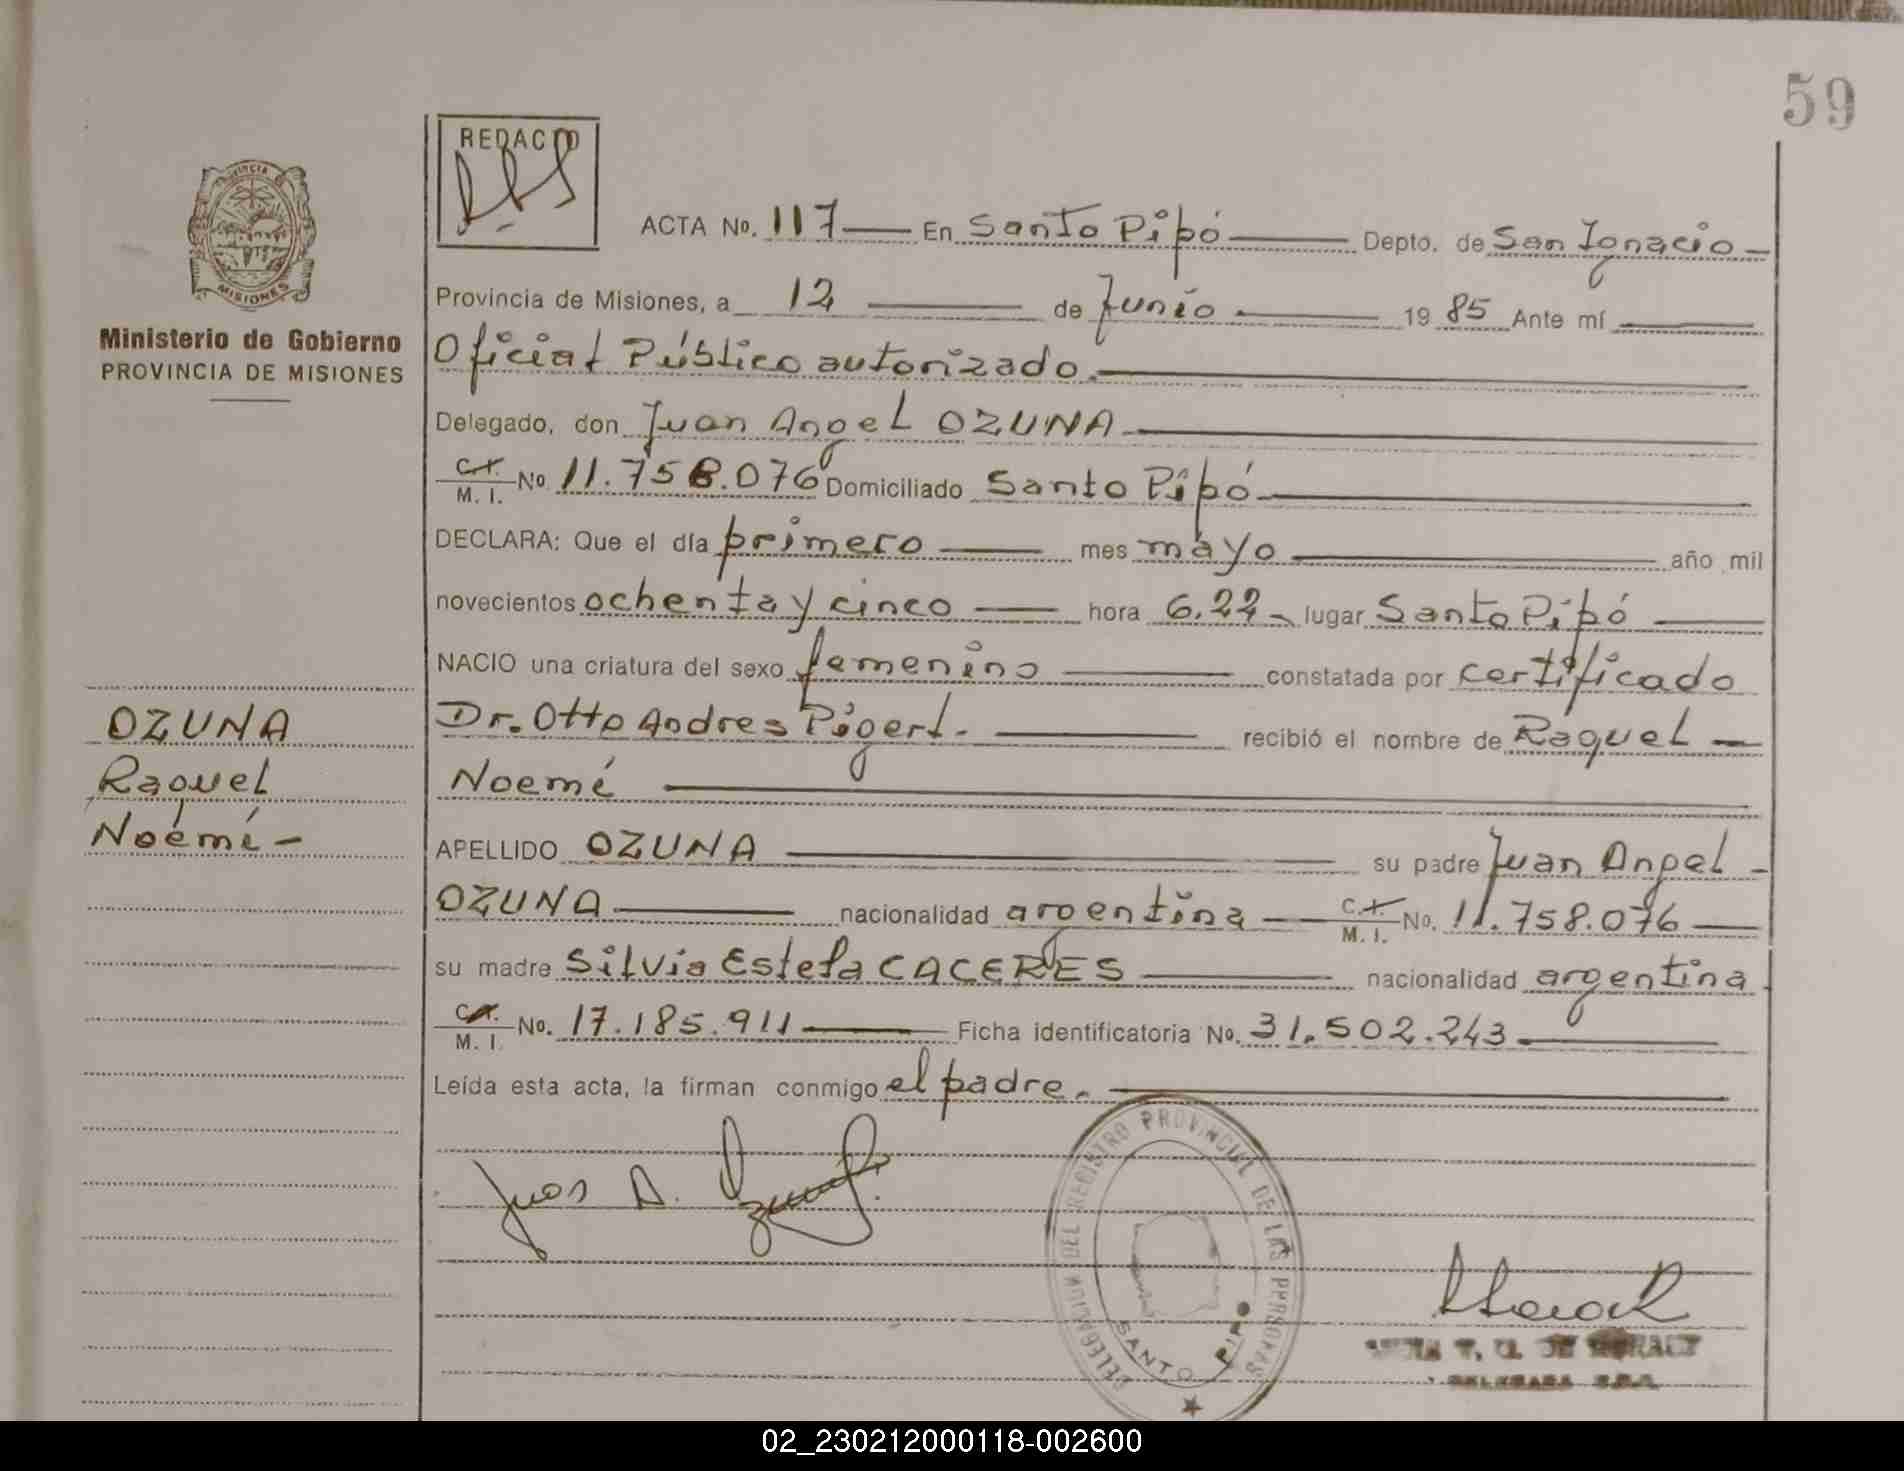 59
REDACTO
PROVINCIA DE
MISIONES
Ministerio de Gobierno
PROVINCIA DE MISIONES
ACTA No. 117 En Santo Pipó Depto. de San Ignacio
Provincia de Misiones, a 12 de Junio 1985 Ante mí
Oficial Público autorizado.
Delegado, don Juan Angel OZUNA
C.I. M. I. No 11.758.076 Domiciliado Santo Pipó
DECLARA: Que el día primero mes mayo año mil
novecientos ochenta y cinco hora 6.22 lugar Santo Pipó
NACIO una criatura del sexo femenino constatada por certificado
Dr. Otto Andres Pigerl. recibió el nombre de Raquel
Noemé
OZUNA
Raquel
Noemé
APELLIDO OZUNA su padre Juan Angel
OZUNA nacionalidad argentina C.I. M. I. No. 11.758.076
su madre Silvia Estela CACERES nacionalidad argentina
C.I. M. I. No. 17.185.911 Ficha identificatoria No. 31.502.243
Leída esta acta, la firman conmigo el padre.
Juan A. Ozuna
DELEGACION DEL REGISTRO PROVINCIAL DE LAS PERSONAS
SANTO PIPO
02_230212000118-002600